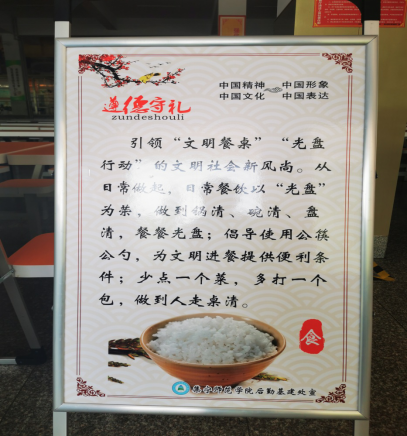 中国精神 中国形象
中国文化 中国表达
遵德守礼
zundeshouli
引领“文明餐桌”“光盘
行动”的文明社会新风尚。从
日常做起，日常餐饮以“光盘”
为荣，做到锅清、碗清、盘
清，餐餐光盘；倡导使用公筷
公勺，为文明进餐提供便利条
件；少点一个菜，多打一个
包，做到人走桌清。
食
师范学院后勤基建处宣